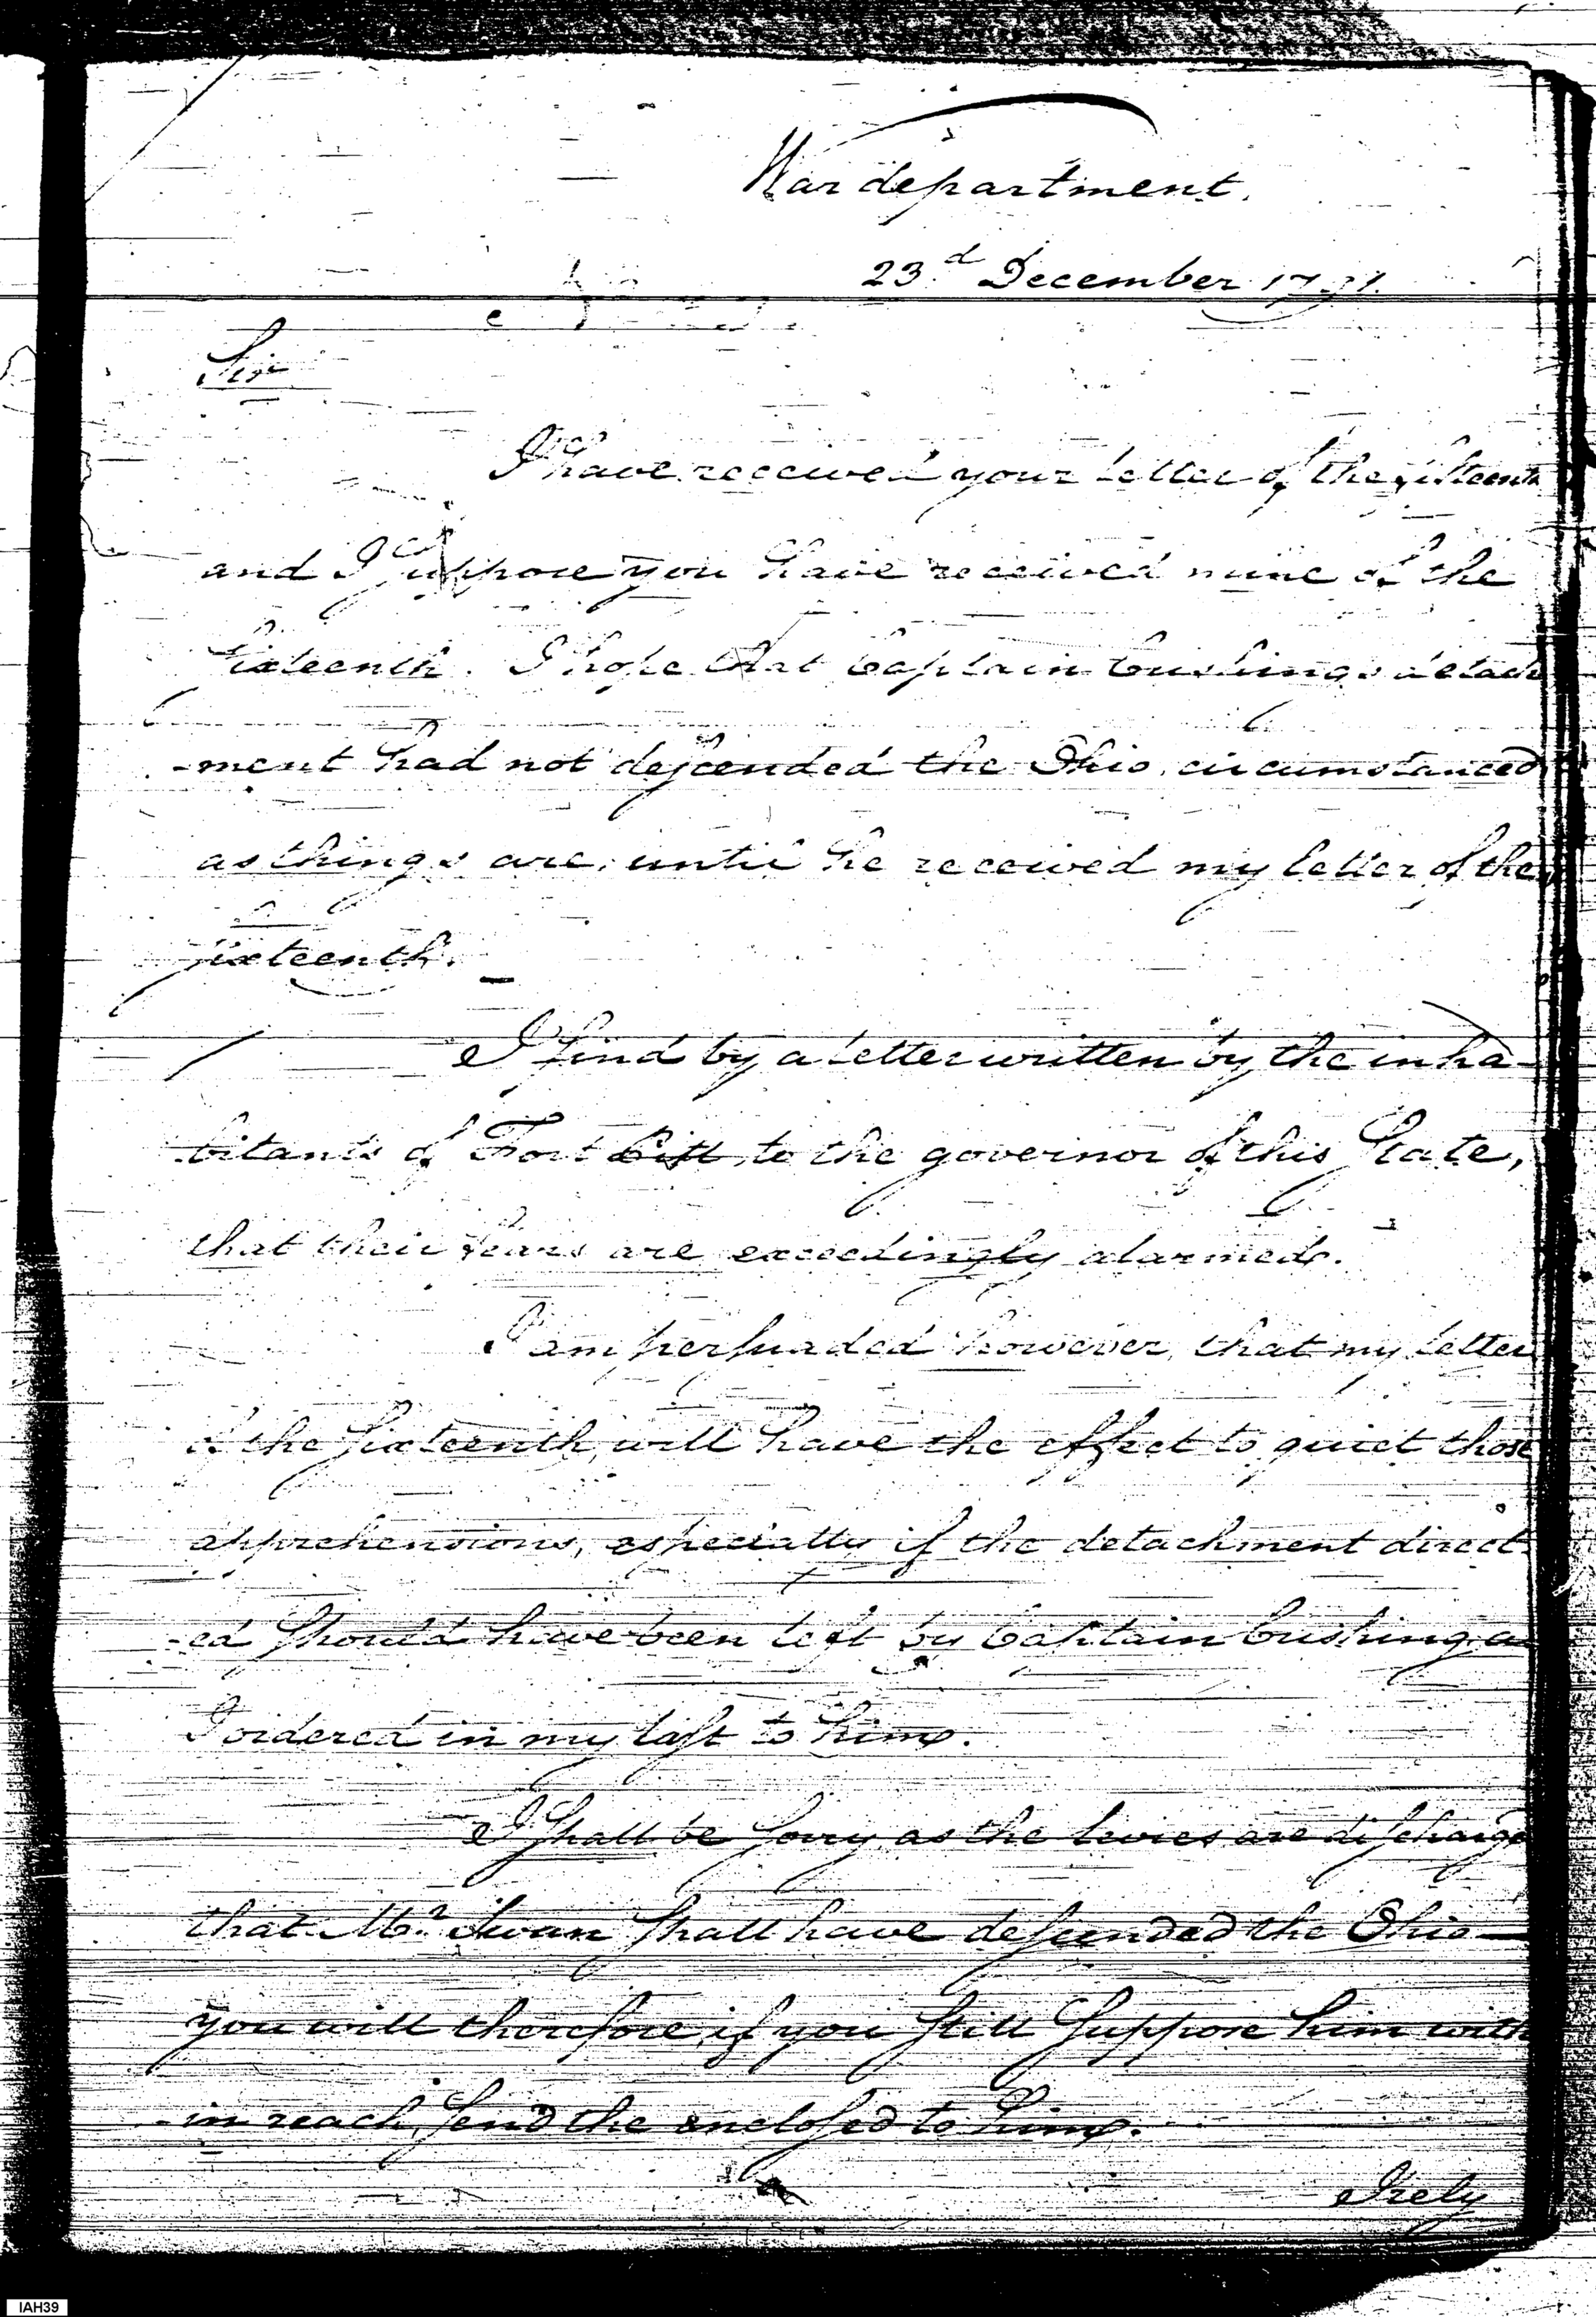 War department.
23.d December 1791.
Sir
I have received your letter of the fifteenth
and I suppose you have received mine of the
sixteenth. I hope that Captain Cushings detach
-ment had not descended the Ohio, circumstanced
as things are, until he received my letter of the
sixteenth.
I find by a letter written by the inha-
bitants of Fort Pitt, to the governor of this State,
that their fears are exceedingly alarmed.
I am persuaded however, that my letter
of the sixteenth, will have the effect to quiet those
apprehensions, especially if the detachment direct-
-ed should have been left by Captain Cushing as
I ordered in my last to him.
I shall be sorry, as the levies are discharged
that Mr. Swan shall have descended the Ohio—
you will therefore, if you still suppose him with
-in reach, send the enclosed to him.
I rely
IAH39